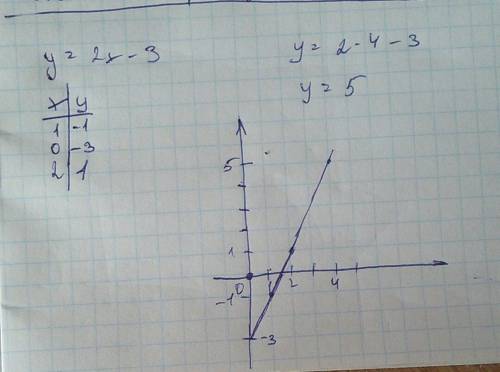 y = 2x - 3
y = 2·4 - 3
y = 5
x y
1 -1
0 -3
2 1
5
1
0 1 2 4
-1
-3